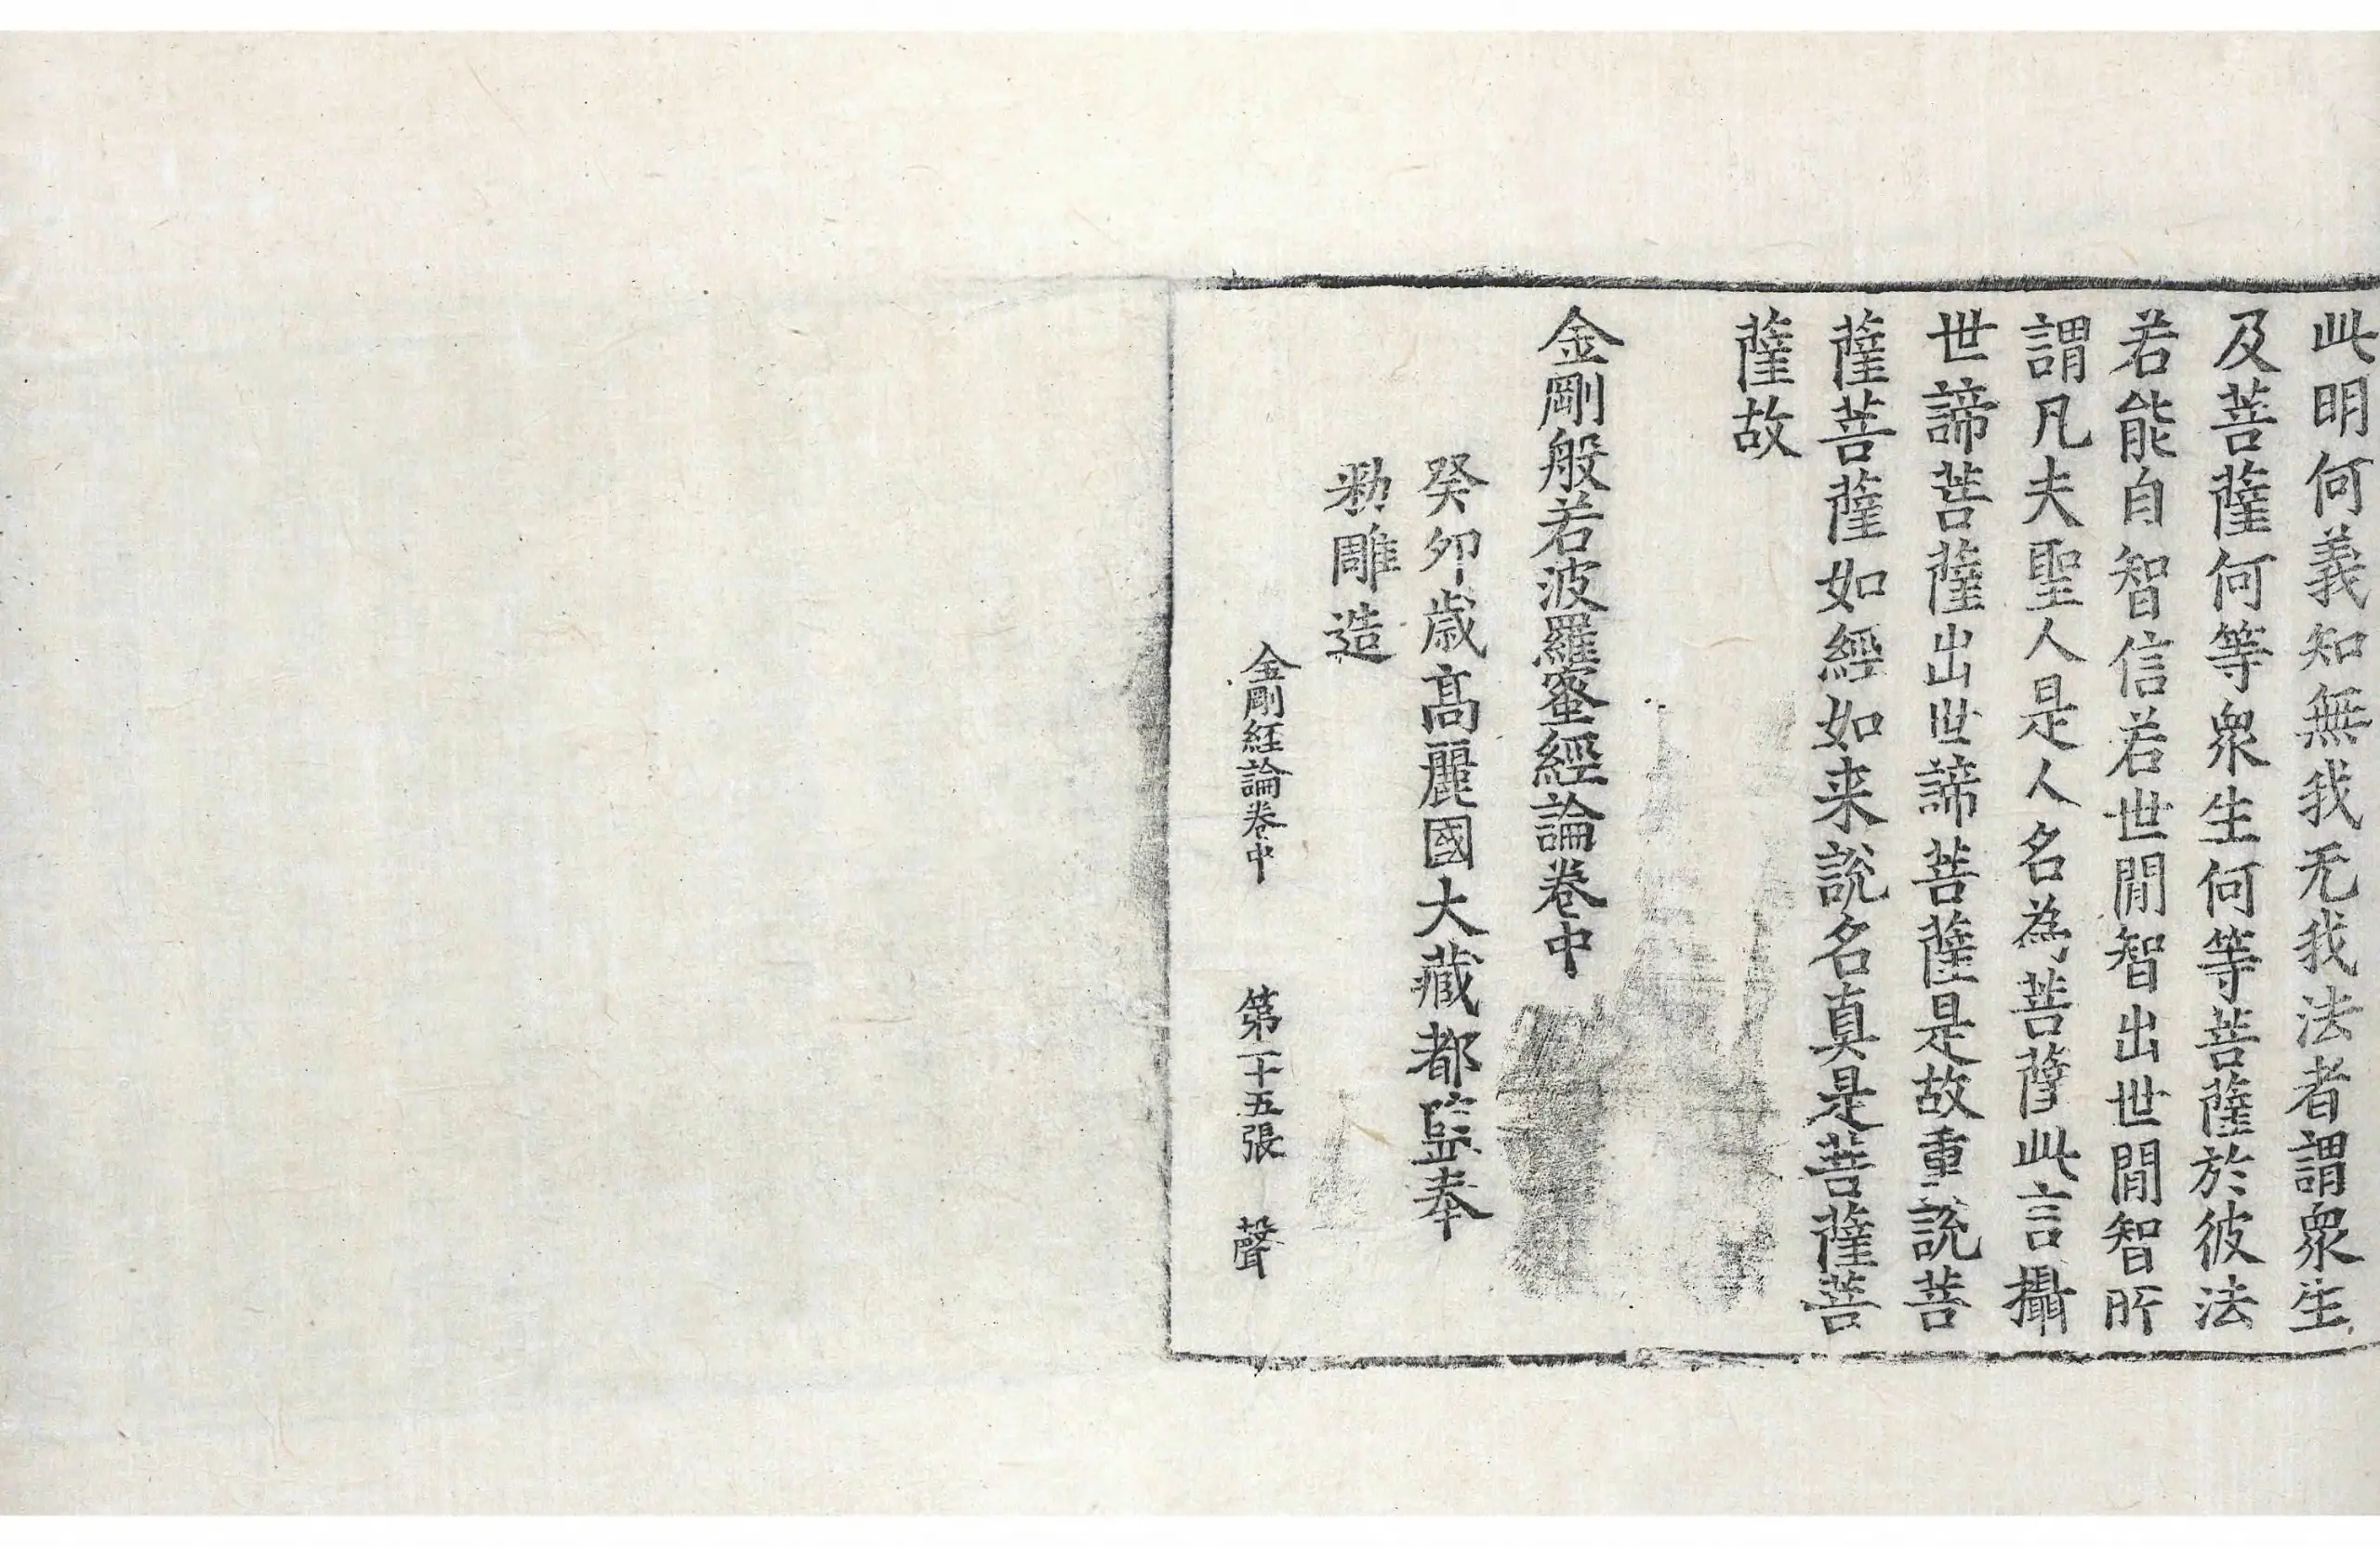 此明何義知無我无我法者謂衆生
及菩薩何等衆生何等菩薩於彼法
若能自智信若世閒智出世閒智所
謂凡夫聖人是人名為菩薩此言攝
世諦菩薩出世諦菩薩是故重說菩
薩菩薩如經如来說名真是菩薩菩
薩故
金剛般若波羅蜜經論卷中
癸卯歲高麗國大藏都監奉
勑雕造
金剛経論卷中 第十五張 聲